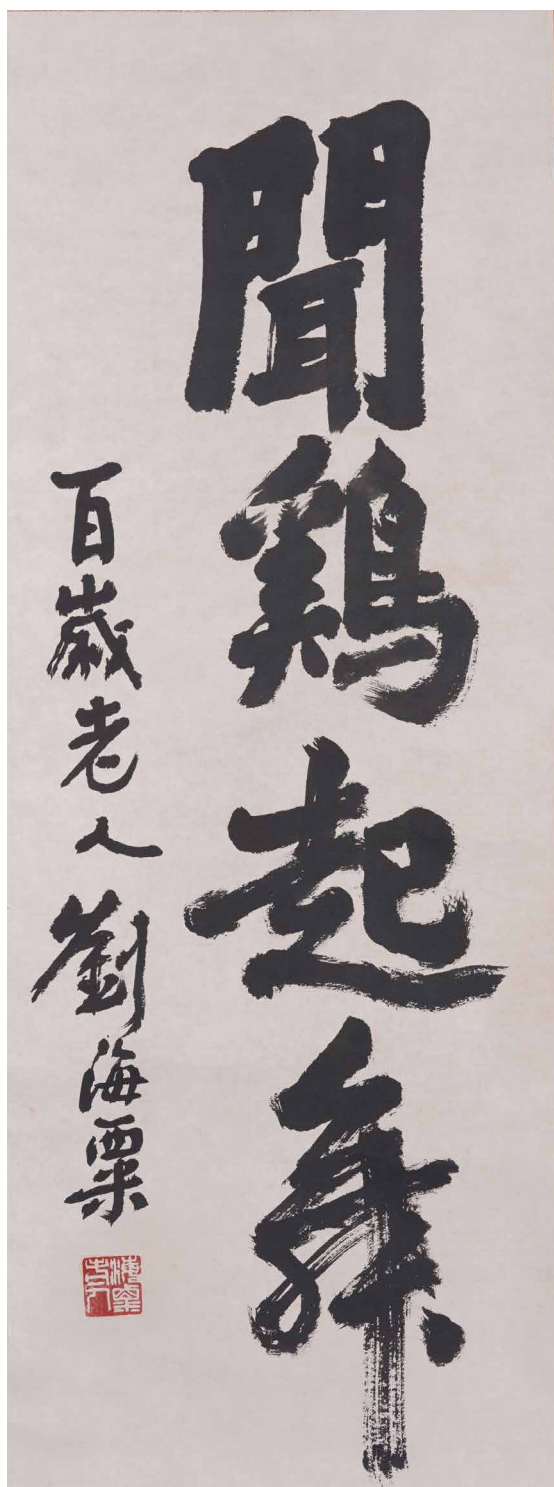 聞鷄起舞
百歲老人劉海粟